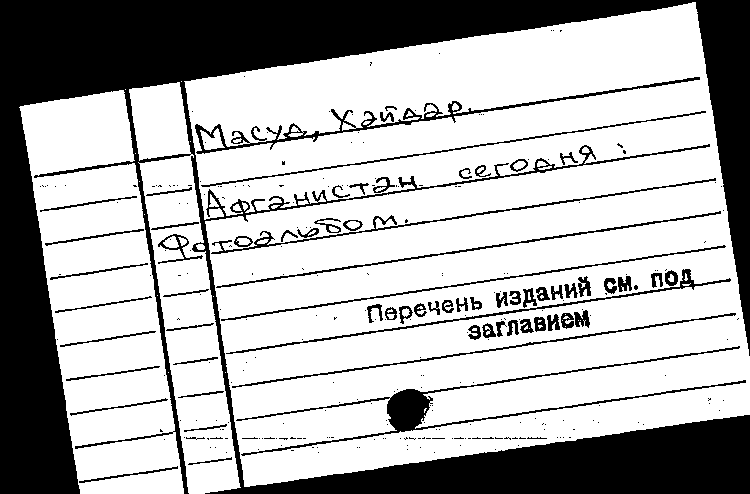 Масуд, Хайдар.
Афганистан сегодня :
Фотоальбом.
Перечень изданий см. под
заглавием